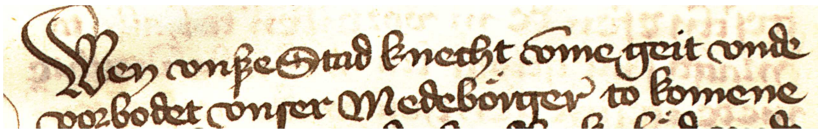 Wen vnsze Stad knecht vme geit vnde
vorbodet vnser Medebörger to komene